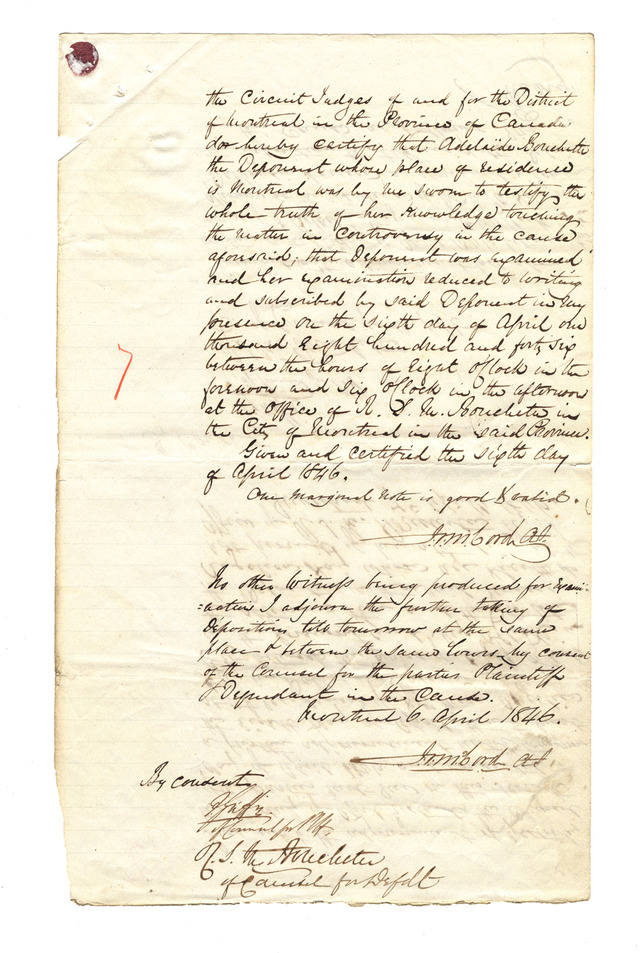 the Circuit Judges of and for the District
of Montreal in the Province of Canada
do hereby certify that Adelaide Bouchette
the Deponent whose place of residence
is Montreal was by me sworn to testify the
whole truth of her Knowledge touching
the matter in controversy in the cause
aforesaid; that Deponent was examined
and her examination reduced to writing
and subscribed by said Deponent in my
presence on the sixth day of April one
thousand Eight hundred and forty six
between the hours of Eight O'Clock in the
forenoon and six O'Clock in the afternoon
at the Office of R. S. M. Bouchette in
the City of Montreal in the said Province.
Given and certified the sixth day
of April 1846.
One marginal note is good & valid.
McCord
No other Witness being produced for exami-
:nation I adjourn the further taking of
depositions till tomorrow at the same
place & between the same hours by consent
of the Counsel for the parties Plaintiff
& Defendant in the Cause.
Montreal 6. April 1846.
McCord
By consent
of Counsel for Plff.
R. S. M. Bouchette
of Counsel for Defdt
7